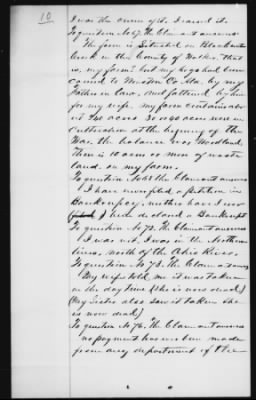 10
I was the owner of it. I raised it.
To question No 67. The Claimant answers
The farm is Situated on Blackwater
Creek in the County of Walker. That
is, my farm; but my hogs had been
carried to Winston Co. Ala. by my
Father in law, and fattened by him
for my wife. My farm contains abo
ut 240 acres 30 or 40 acres were in
cultivation at the begining of the
War, the balance was Woodland.
There is 10 acres or more of waste
land on my farm.
To question No 68 the Claimant answers
I have never filed a petition in
Bankruptcy, neither have I ever
been declared a Bankrupt
To question No 72. The Claimant answers
I was not. I was in the Northern
lines, north of the Ohio River.
To question No 73. The Claimant answers
My wife told me it was taken
in the day time (she is now dead)
(My Sister also saw it taken she
is now dead)
To question No 76. The Claimant answers
no payment has ever been made
from any department of the